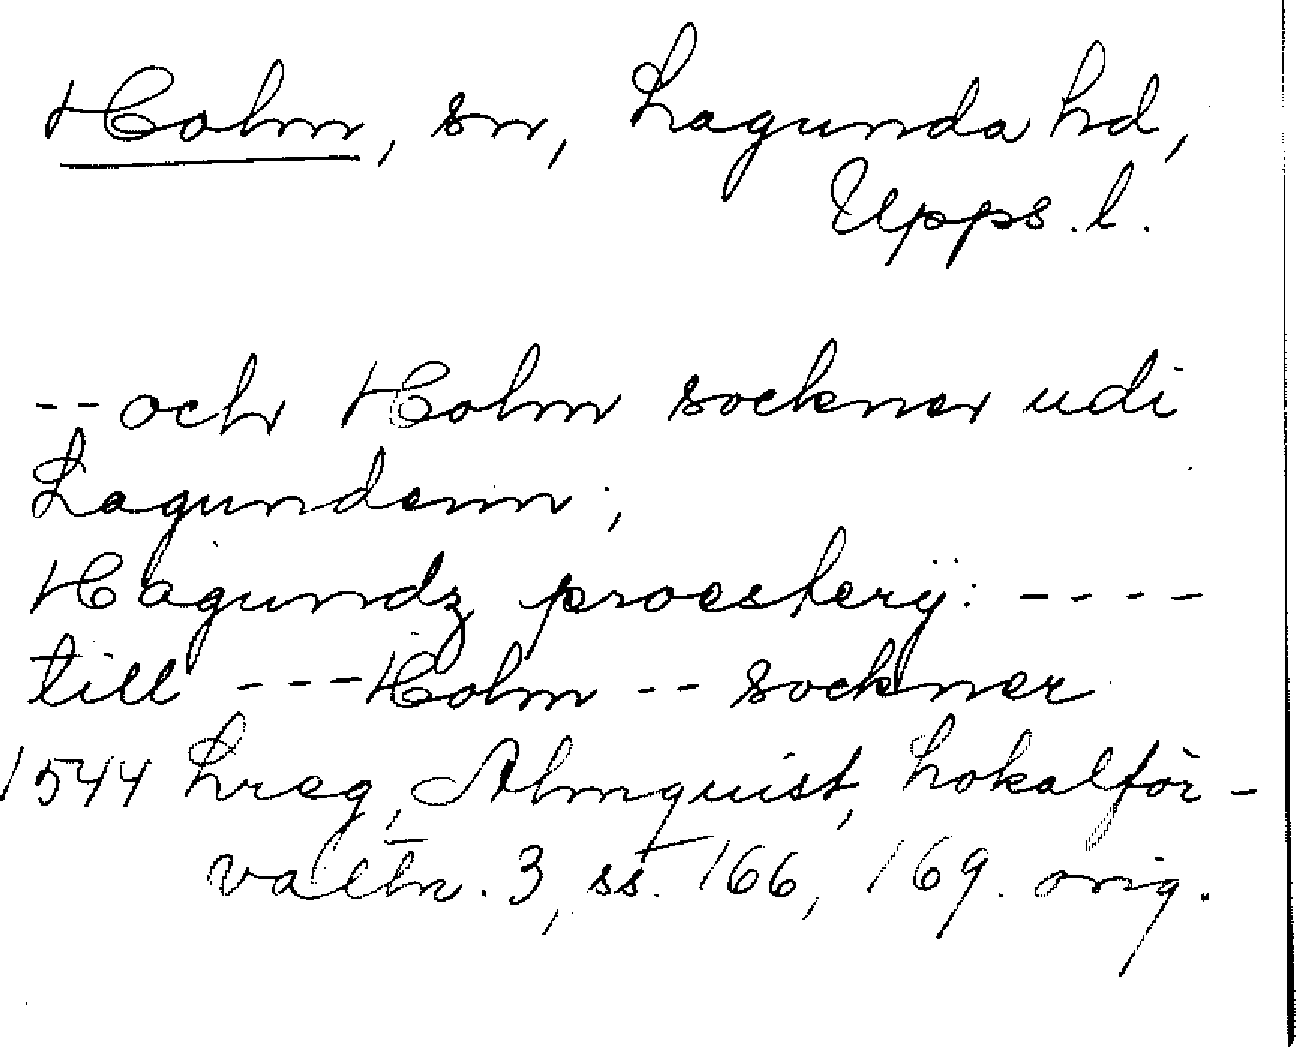 Holm, sn, Lagunda hd,
Upps. l.
-- och Holm sockner udi
Lagundenn;
Hagundz proesterÿ: ----
till --- Holm -- sockner
1544 Lreg, Almquist, Lokalför-
valtn. 3, ss. 166, 169. orig.